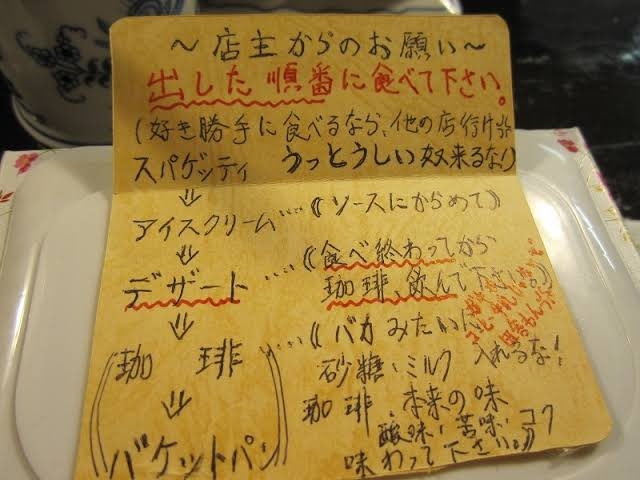 ～店主からのお願い～
出した順番に食べて下さい。
(好き勝手に食べるなら、他の店行け!!
スパゲッティ うっとうしい奴来るな!)
⇓
アイスクリーム…《ソースにからめて》
⇓
デザート…《食べ終わってから
珈琲、飲んで下さい。》
⇓
珈琲…《バカみたいに
砂糖・ミルク 入れるな!
珈琲、本来の味
酸味・苦味・コク
⇓
味わって下さい。》
バケットパン